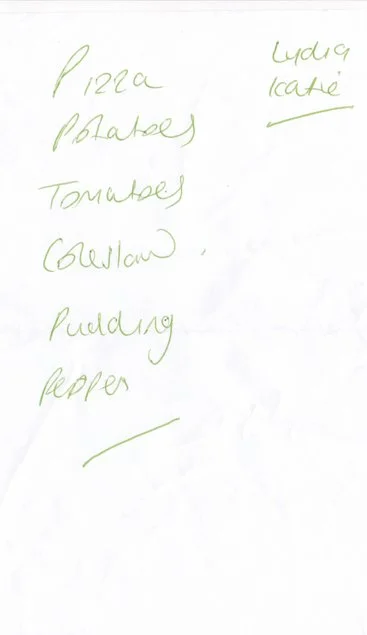 Pizza
Potatoes
Tomatoes
Coleslaw
Pudding
Pepper
Lydia
Katie